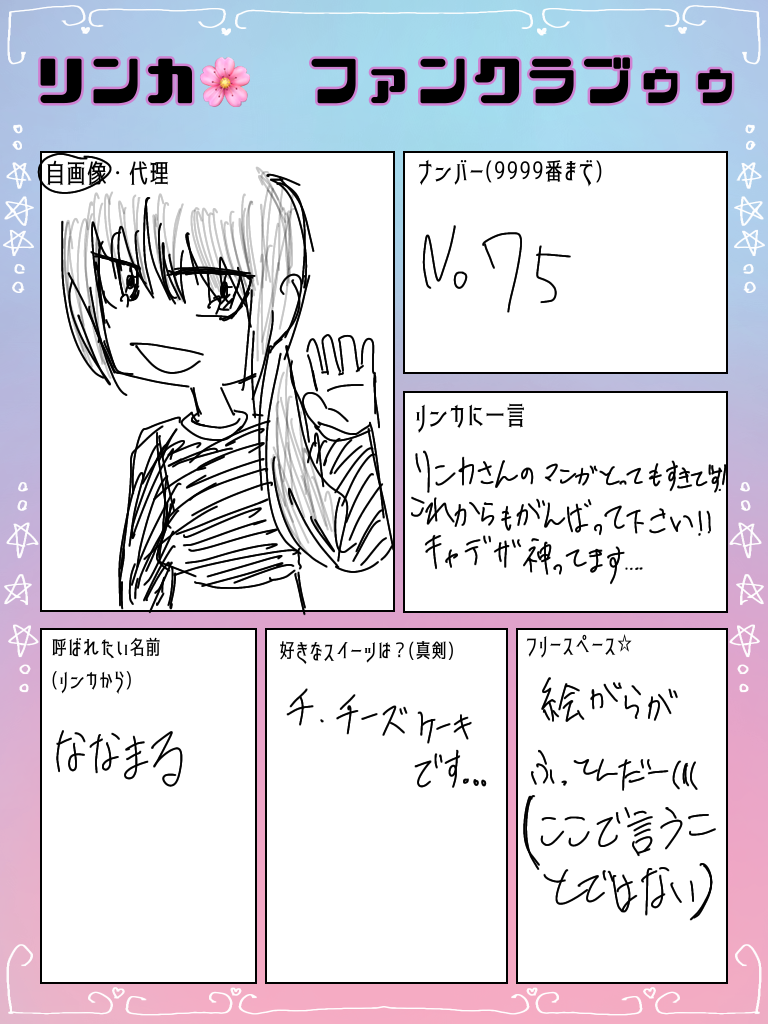 リンカ🌸 ファンクラブゥゥ
自画像・代理
ナンバー(9999番まで)
No 75
リンカに一言
リンカさんのマンガとってもすきです!!
これからもがんばって下さい!!
キャデザ神ってます....
呼ばれたい名前
(リンカから)
ななまる
好きなスイーツは?(真剣)
チ、チーズケーキ
です...
フリースペース☆
絵がらが
ふってんだー(((
(ここで言うこ
とではない)